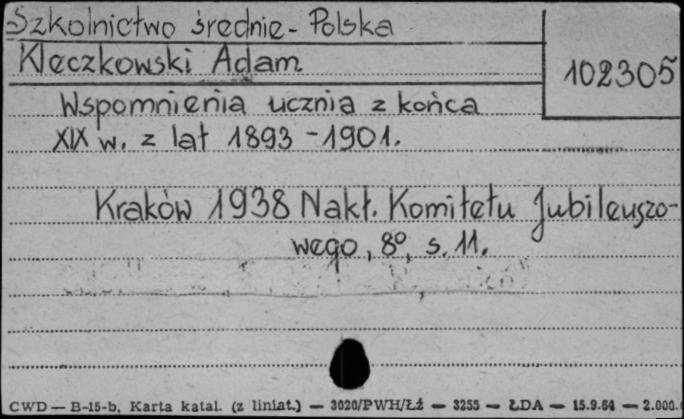 Szkolnictwo średnie - Polska
Kleczkowski Adam
102305
Wspomnienia ucznia z końca
XIX w. z lat 1893 - 1901.
Kraków 1938 Nakł. Komitetu Jubileuszo-
wego, 8º, s. 11.
CWD — B-15-b, Karta katal. (z liniat.) — 3020/PWH/Łź — 3255 — ŁDA — 15.9.64 — 2.000.